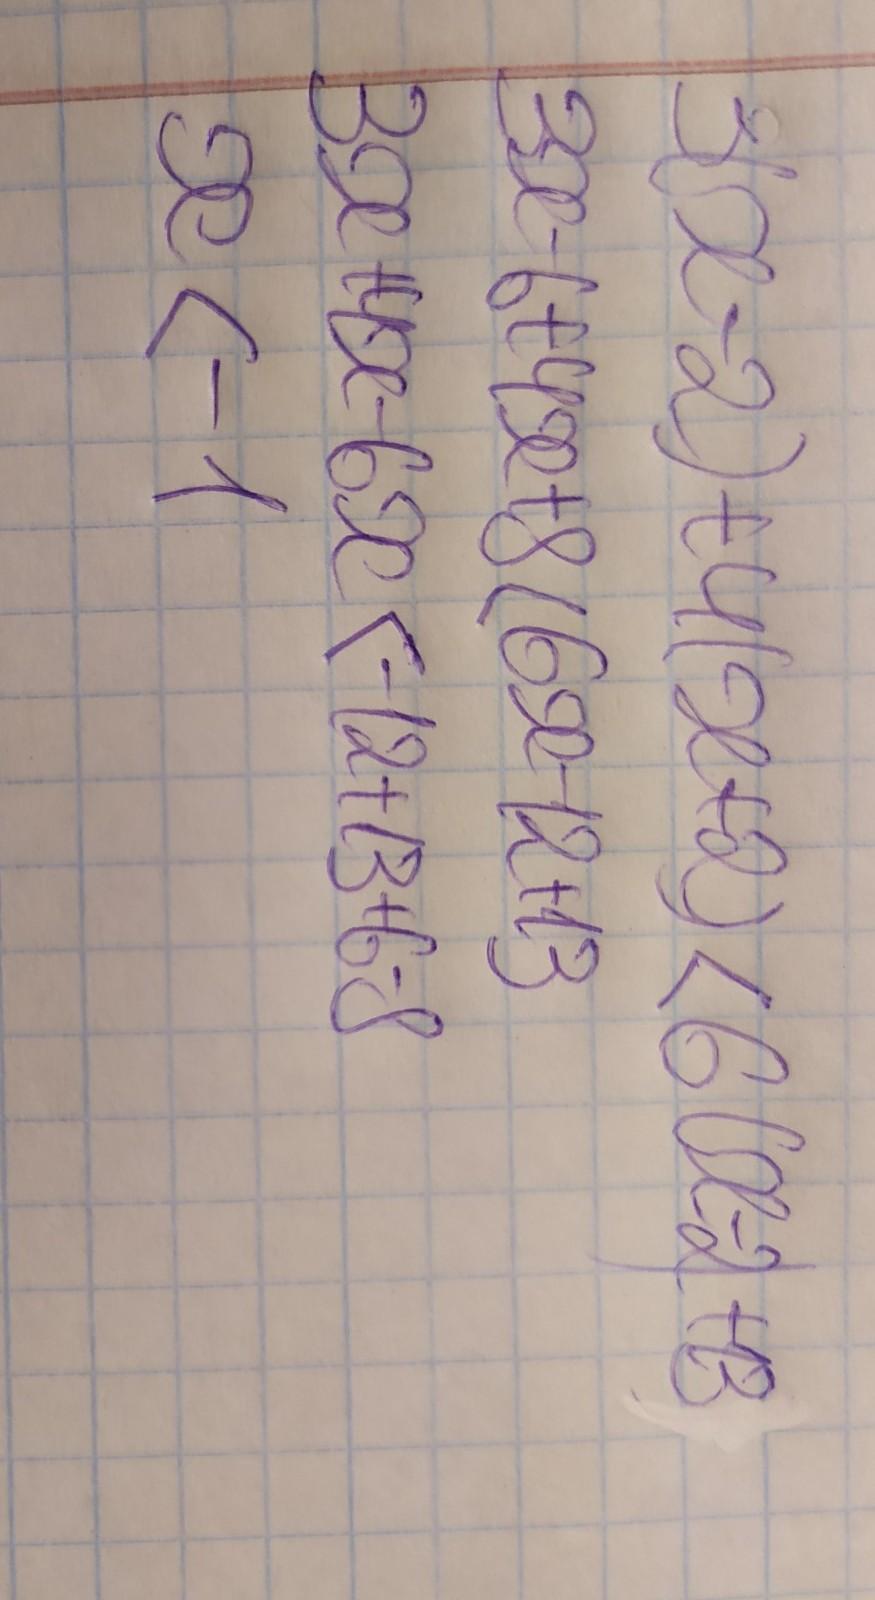 3(x-2)+4(x+2)<6(x-2)+13
3x-6+4x+8<6x-12+13
3x+4x-6x<-12+13+6-8
x<-1